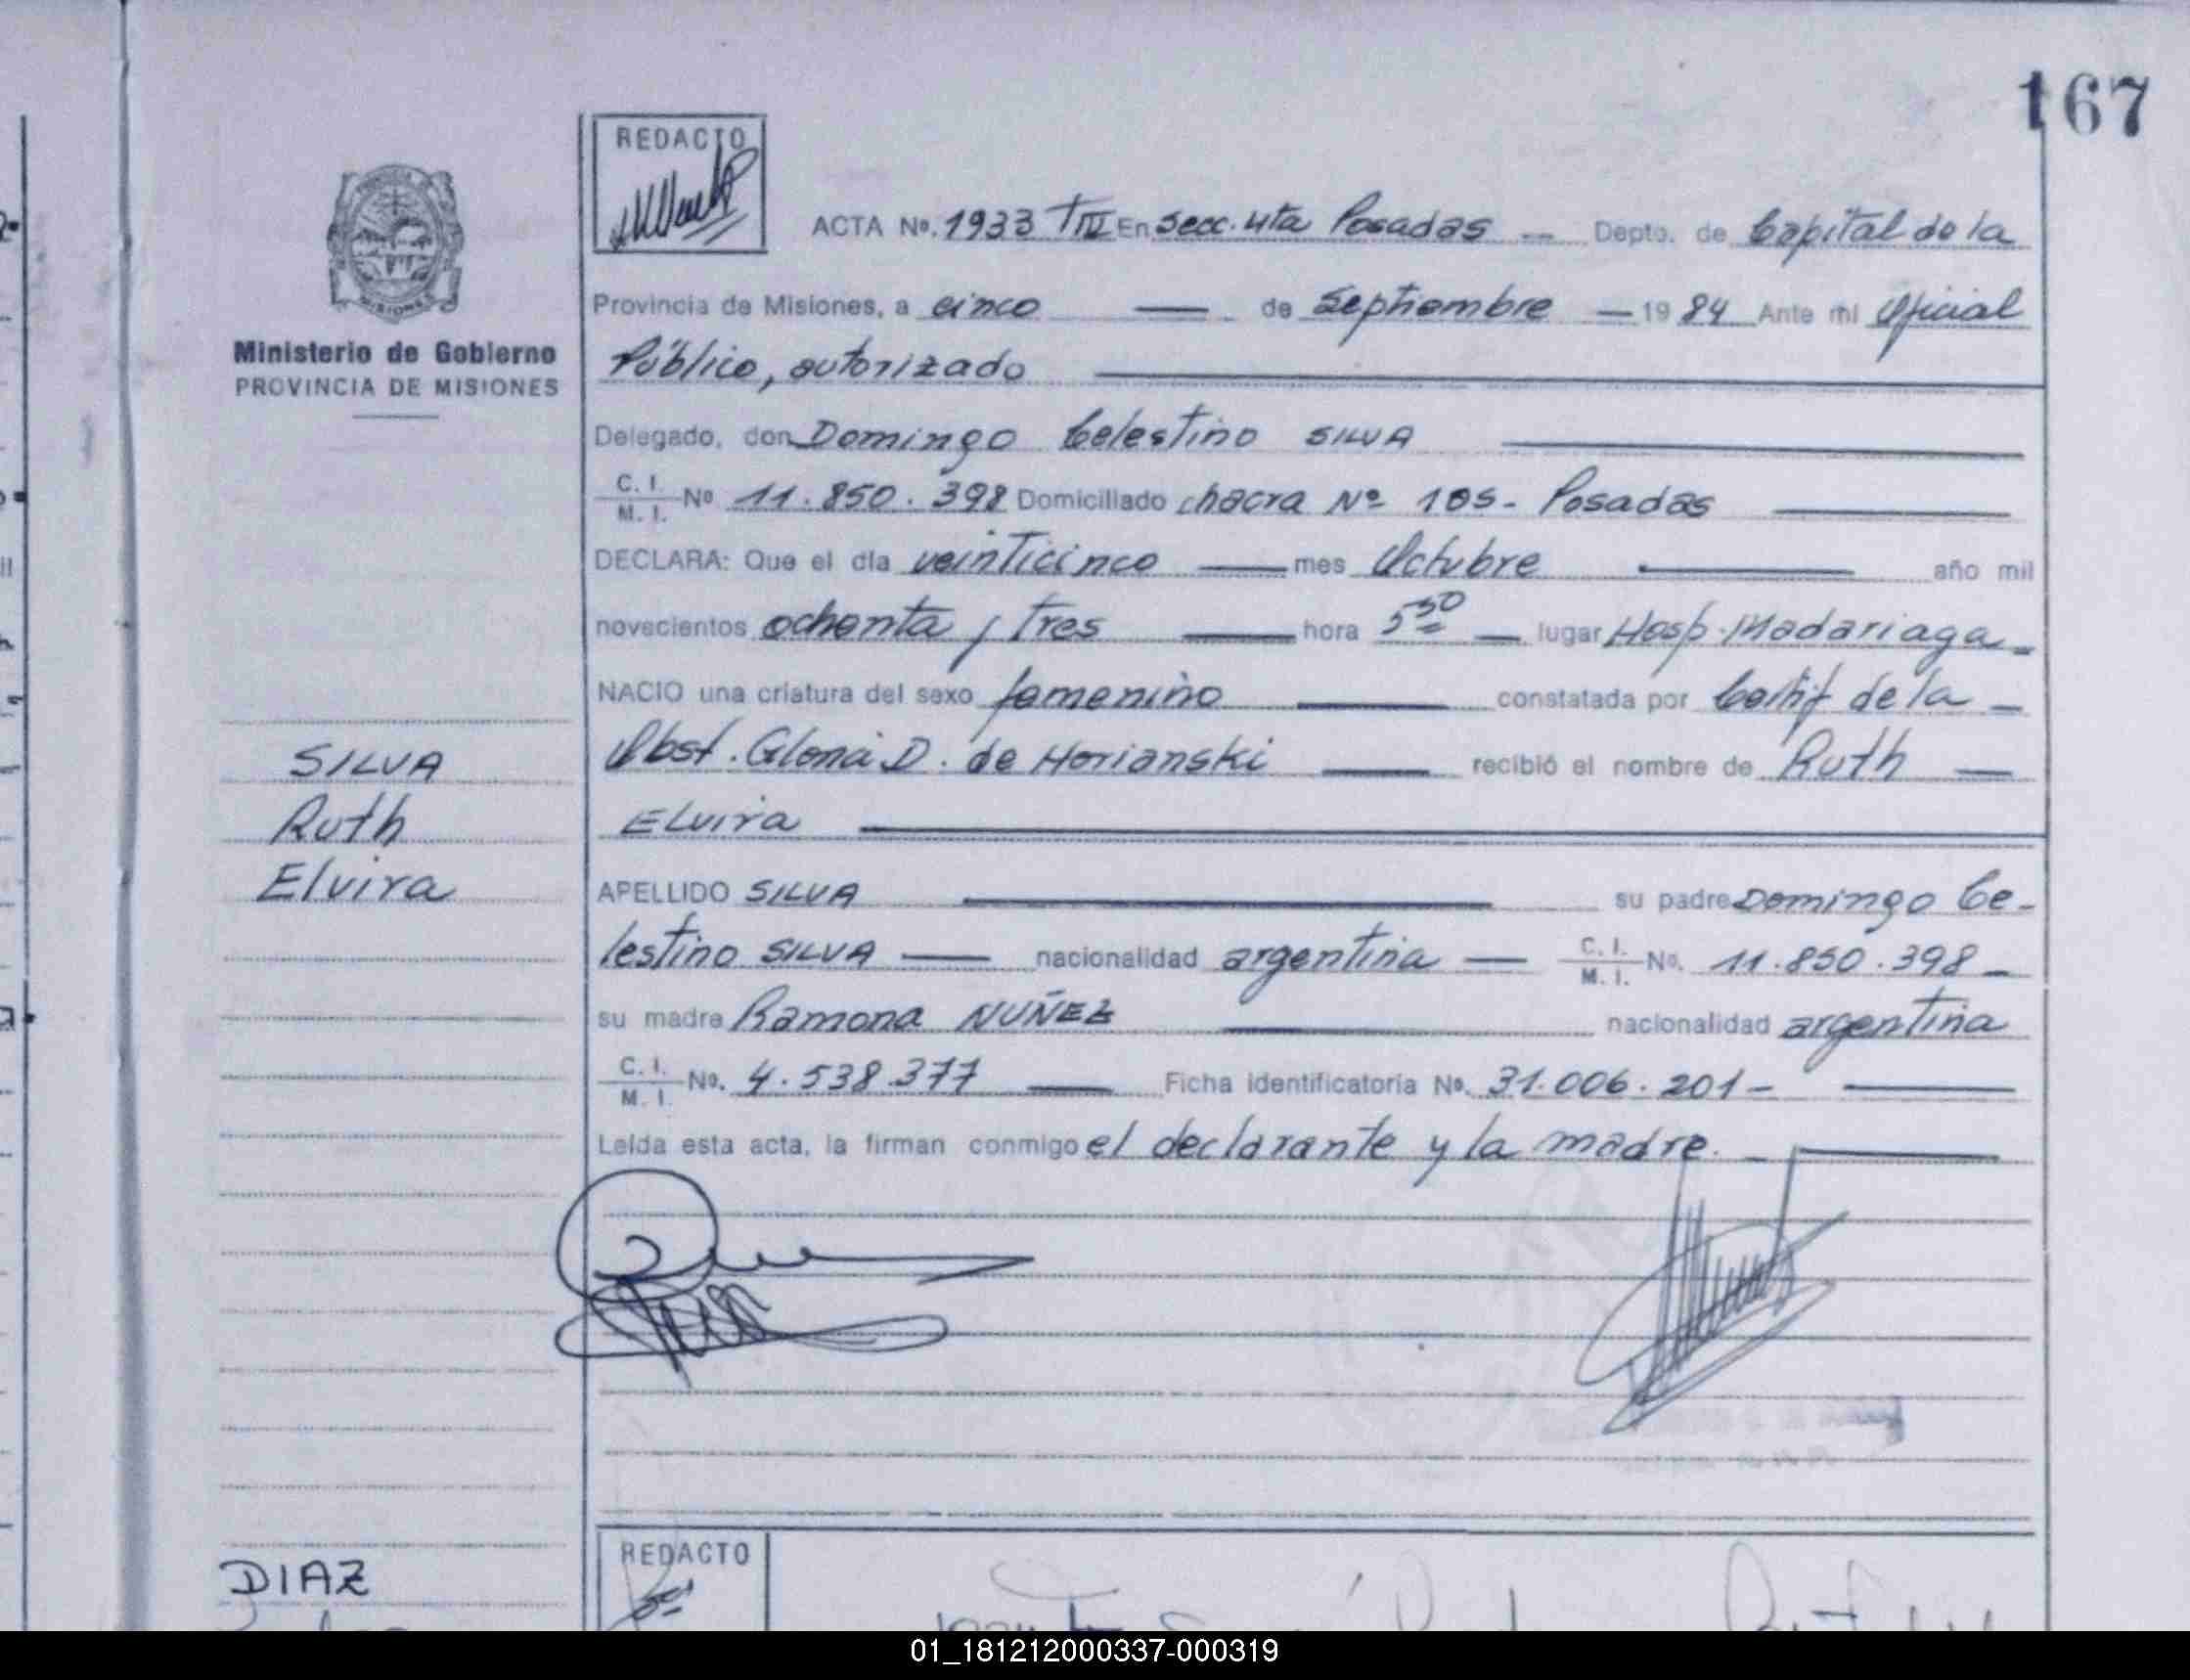 167
REDACTO
ACTA No. 1933 TIII En Secc. 4ta Posadas Depto. de Capital de la
Provincia de Misiones, a cinco de Septiembre 1984 Ante mi Oficial
Ministerio de Gobierno
PROVINCIA DE MISIONES
Público, autorizado
Delegado, don Domingo Celestino SILVA
C. I.
M. I. No 11.850.398 Domiciliado chacra Nº 105- Posadas
DECLARA: Que el dia veinticinco mes Octubre año mil
novecientos ochenta y tres hora 5 30 lugar Hosp. Madariaga
NACIO una criatura del sexo femenino constatada por Certif de la
Obst. Gloria D. de Horianski recibió el nombre de Ruth
Elvira
SILVA
Ruth
Elvira
APELLIDO SILVA su padre Domingo Ce-
lestino SILVA nacionalidad argentina C. I.
M. I. No. 11.850.398
su madre Ramona NUÑEZ nacionalidad argentina
C. I.
M. I. No. 4.538.377 Ficha identificatoria No. 31.006.201-
Leida esta acta, la firman conmigo el declarante y la madre.
DIAZ
REDACTO
01_181212000337-000319